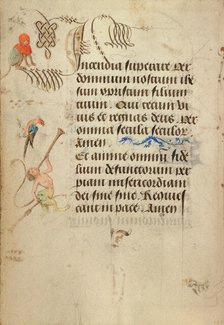 Incendia superare per
dominum nostrum ihe
sum christum filium
tuum. Qui tecum viuit
et regnat deus. per
omnia secula seculor
Amen.
Et anime omnium fide
lium defunctorum per
piam misericordiam
dei sine fine. Requies
cant in pace. Amen